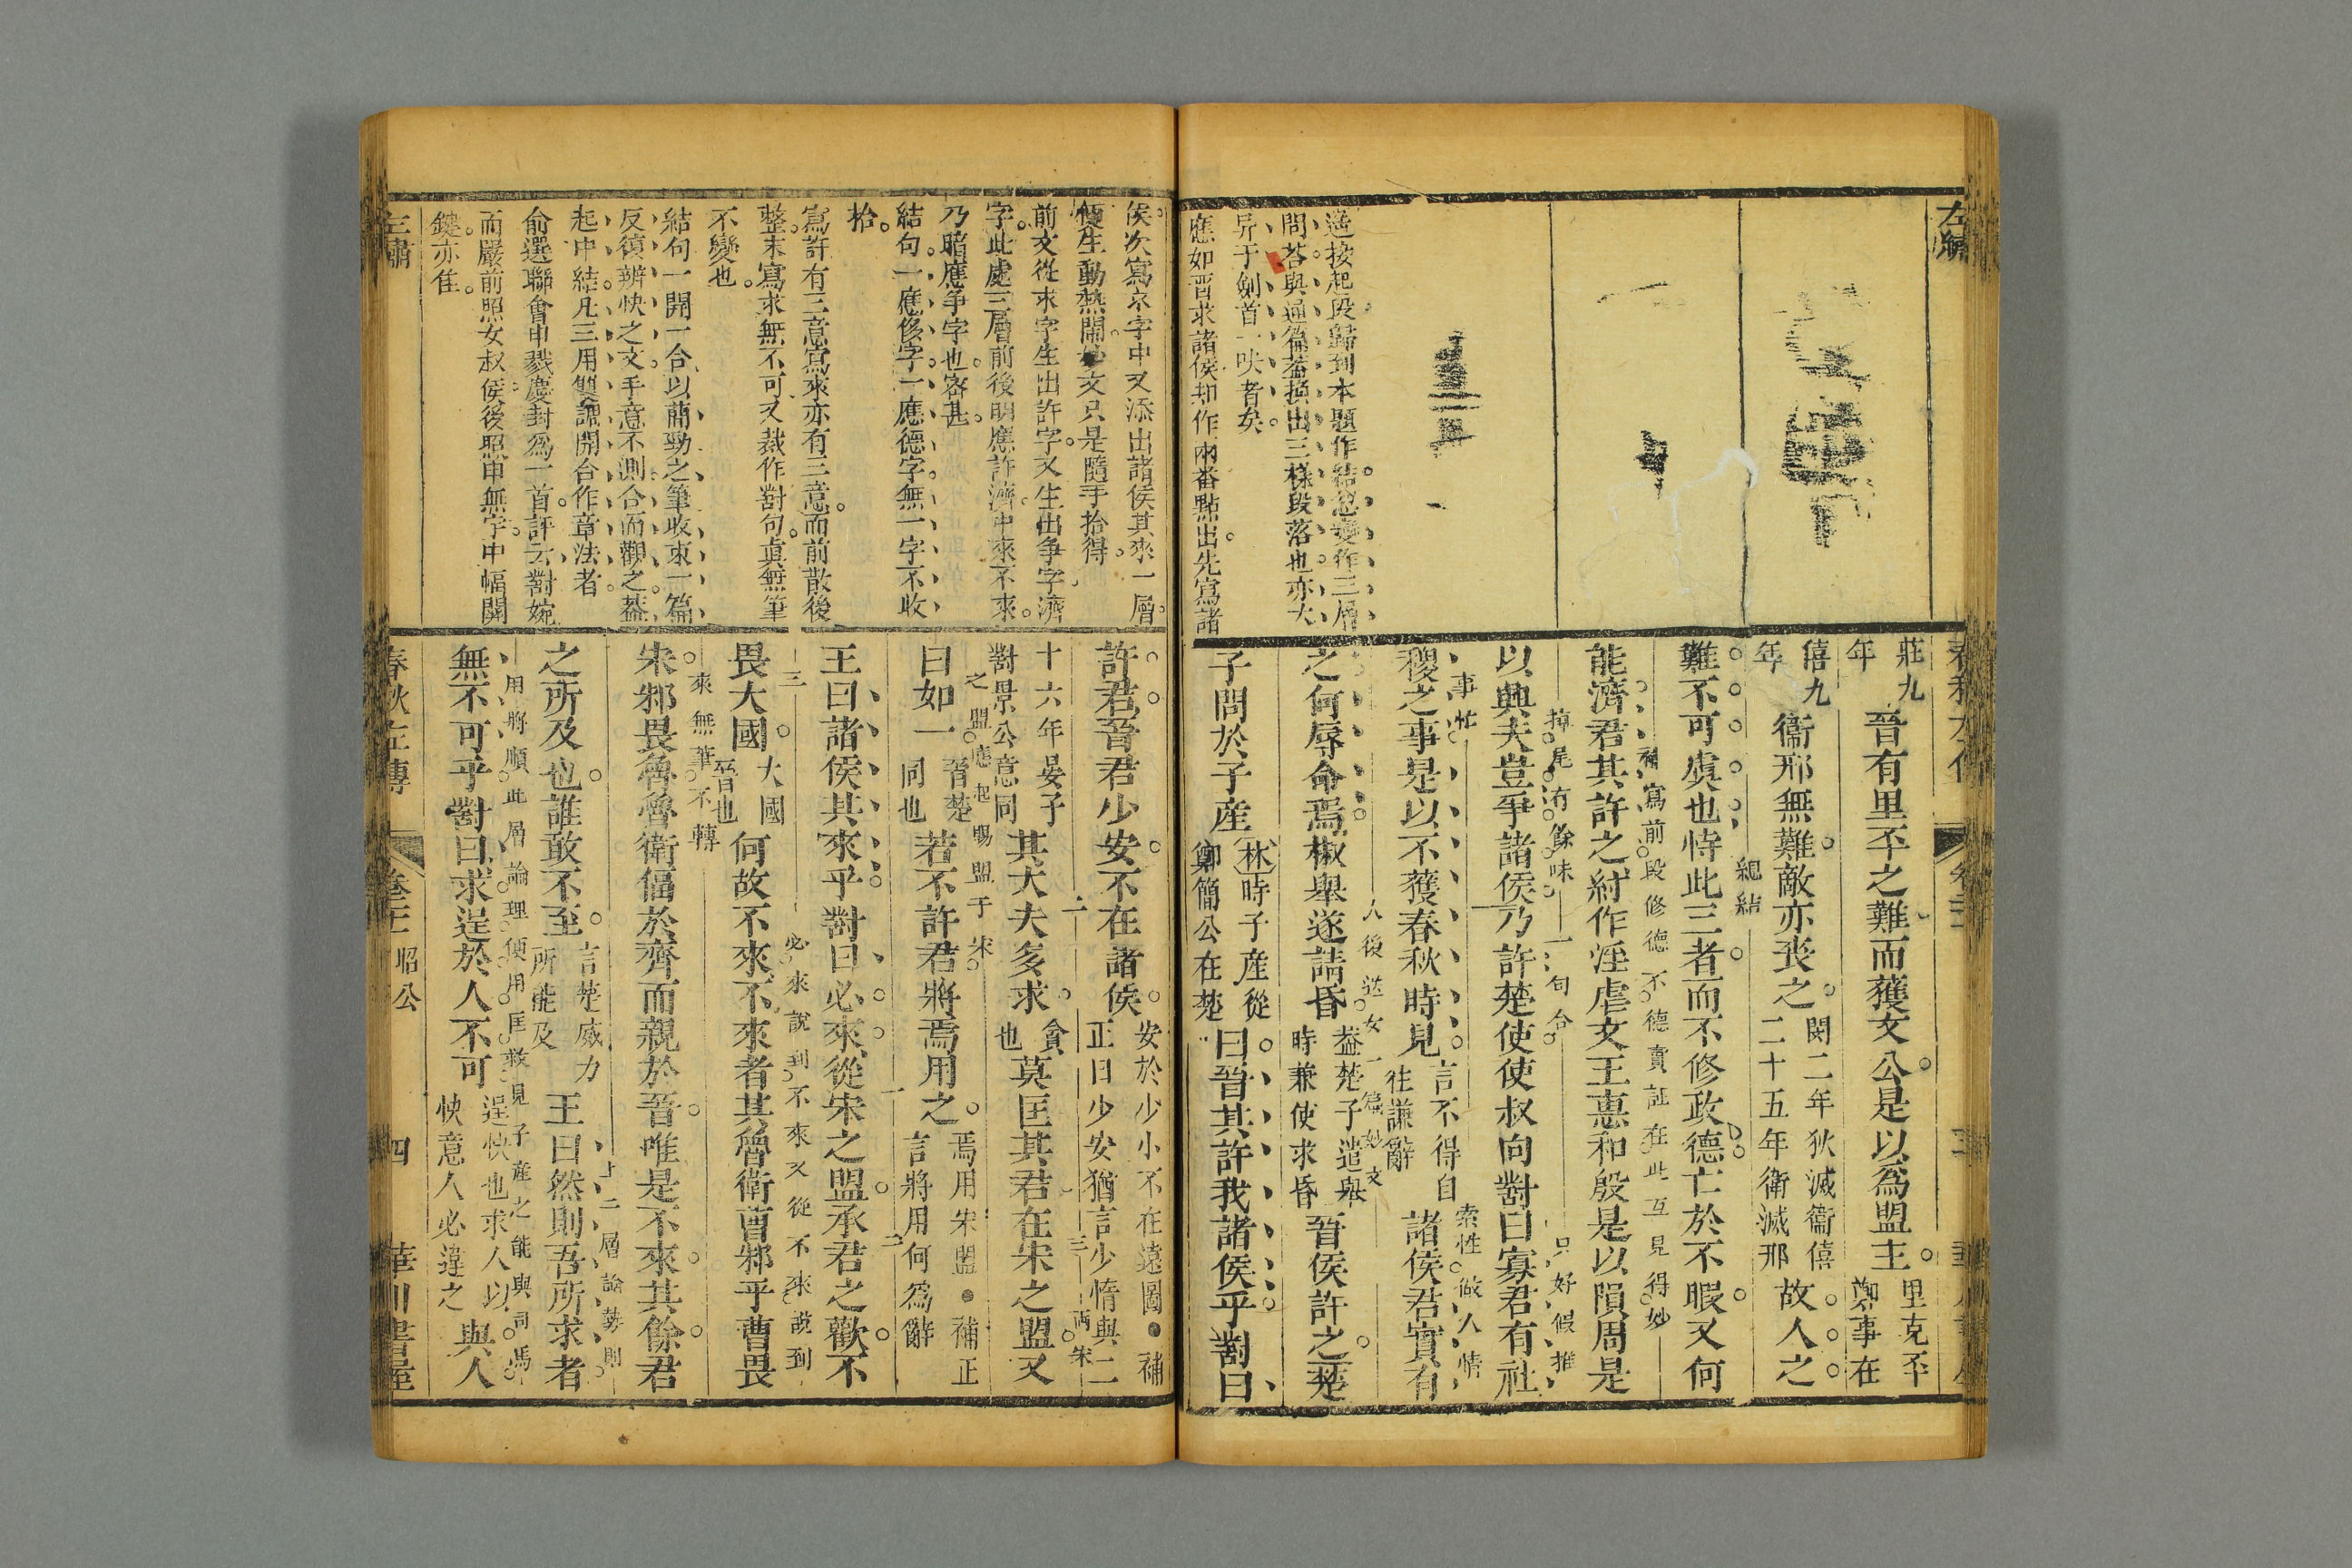 左繡
遙接起段歸到本題作結忽變作三層
問荅與通篇葢換出三樣段落也亦大
异于劍首一吷者矣
應如晋求諸侯却作兩番點出先寫諸
莊九年
晉有里丕之難而獲文公是以爲盟主
里克丕鄭事在
僖九年
衞邢無難敵亦喪之
閔二年狄滅衞僖
二十五年衛滅邢
故人之
難不可虞也恃此三者而不修政德亡於不暇又何
總結
能濟君其許之紂作淫虐文王惠和殷是以隕周是
補寫前段修德不德賣証在此互見得妙
以興夫豈爭諸侯乃許楚使使叔向對曰寡君有社
掉尾有餘味
一句合
只好假推
稷之事是以不獲春秋時見
事忙
言不得自
往謙辭
諸侯君實有
索性做人情
之何辱命焉椒舉遂請昏
入後遊女一篇妙文
葢楚子遣舉
時兼使求昏
晉侯許之楚
子問於子產
林時子產從
鄭簡公在楚
曰晉其許我諸侯乎對曰
侯次寫京字中又添出諸侯其來一層
便生動熱鬧妙文只是隨手拾得
前文從求字生出許字又生出争字濟
字此處三層前後明應許濟中來不來
乃暗應争字也密甚
結句一應侈字一應德字無一字不收
拾
寫許有三意寫來亦有三意而前散後
整末寫求無不可又裁作對句真無筆
不變也
結句一開一合以蕑勁之筆收束一篇
反復辨快之文手意不測合而觀之葢
起中結凡三用雙調開合作章法者
俞選聯會申戮慶封爲一首評云對婉
而嚴前照女叔侯後照申無宇中幅關
鍵亦佳
許君晉君少安不在諸侯
安於少小不在遠圖補
正曰少安猶言少惰與二
十六年晏子
對景公意同
其大夫多求
貪也
莫匡其君在宋之盟又
曰如一
晉楚同也
之盟應起賜盟于宋
若不許君將焉用之
焉用宋盟補正
言將用何爲辭
王曰諸侯其來乎對曰必來從宋之盟承君之歡不
畏大國
大國晉也
何故不來不來者其魯衛曹邾乎曹畏
必來說到不來又從不來說到
宋邾畏魯魯衛偪於齊而親於晉唯是不來其餘君
來無筆不轉
之所及也誰敢不至
言楚威力
所能及
王曰然則吾所求者
上二層論勢則
無不可乎對曰求逞於人不可
用將順此層論理便用匡救見子產之能與司馬
逞快也求人以
快意人必違之
與人
左繡
春秋左傳
卷三
昭公
四
華川書屋